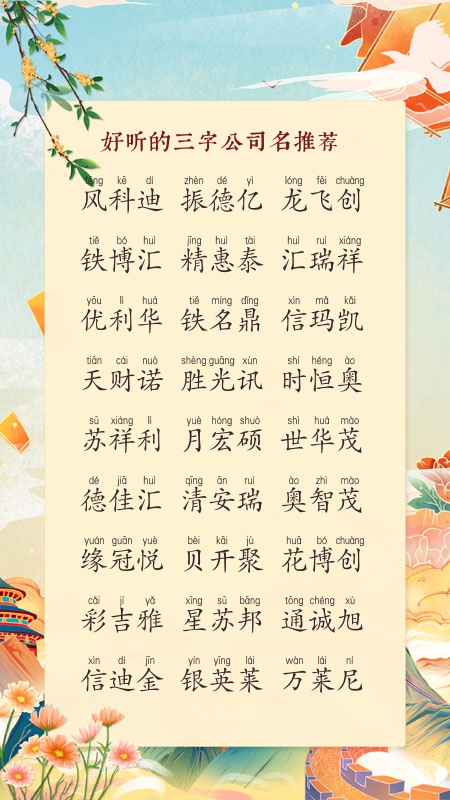 好听的三字公司名推荐
fēng kē dí zhèn dé yì lóng fēi chuàng
风科迪 振德亿 龙飞创
tiě bó huì jīng huì tài huì ruì xiáng
铁博汇 精惠泰 汇瑞祥
yōu lì huá tiě míng dǐng xìn mǎ kǎi
优利华 铁名鼎 信玛凯
tiān cái nuò shèng guāng xùn shí héng ào
天财诺 胜光讯 时恒奥
sū xiáng lì yuè hóng shuò shì huá mào
苏祥利 月宏硕 世华茂
dé jiā huì qīng ān ruì ào zhì mào
德佳汇 清安瑞 奥智茂
yuán guān yuè bèi kāi jù huā bó chuàng
缘冠悦 贝开聚 花博创
cǎi jí yǎ xīng sū bāng tōng chéng xù
彩吉雅 星苏邦 通诚旭
xìn dí jīn yín yīng lái wàn lái ní
信迪金 银英莱 万莱尼